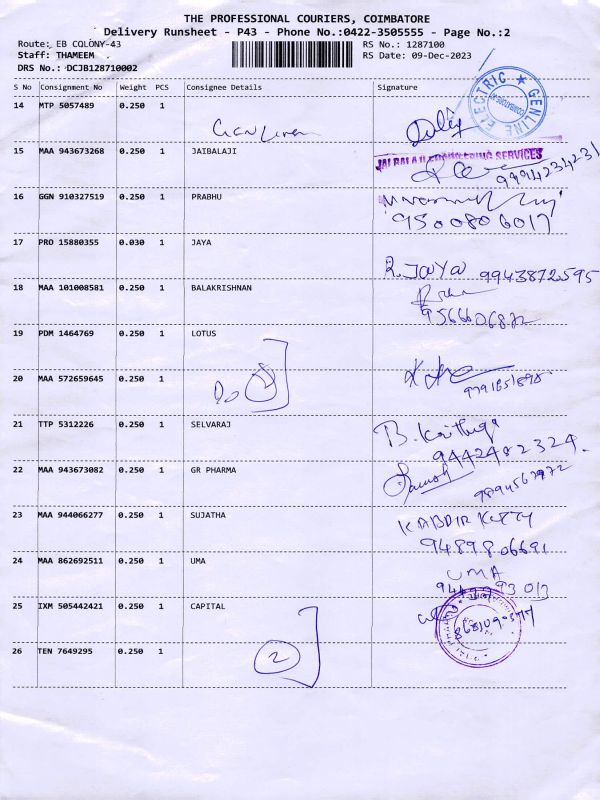 THE PROFESSIONAL COURIERS, COIMBATORE
Delivery Runsheet - P43 - Phone No.:0422-3505555 - Page No.:2
Route: EB COLONY-43 RS No.: 1287100
Staff: THAMEEM RS Date: 09-Dec-2023
DRS No.: DCJB128710002
S No Consignment No Weight PCS Consignee Details Signature
14 MTP 5057489 0.250 1
GENLINE ELECTRIC
15 MAA 943673268 0.250 1 JAIBALAJI JAI BALAJI ENGINEERING SERVICES
9994234231
16 GGN 910327519 0.250 1 PRABHU
9500806017
17 PRO 15880355 0.030 1 JAYA
R. JAYA 9943872595
18 MAA 101008581 0.250 1 BALAKRISHNAN
9566606872
19 PDM 1464769 0.250 1 LOTUS
20 MAA 572659645 0.250 1
21 TTP 5312226 0.250 1 SELVARAJ
9442482324
22 MAA 943673082 0.250 1 GR PHARMA
9894567972
23 MAA 944066277 0.250 1 SUJATHA
9489806691
24 MAA 862692511 0.250 1 UMA UMA
25 IXM 505442421 0.250 1 CAPITAL
26 TEN 7649295 0.250 1
2